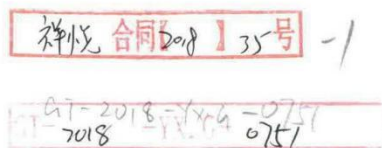 祥悦 合同【2018】35号 -1
GT-2018-YXG-0751
2018 0751